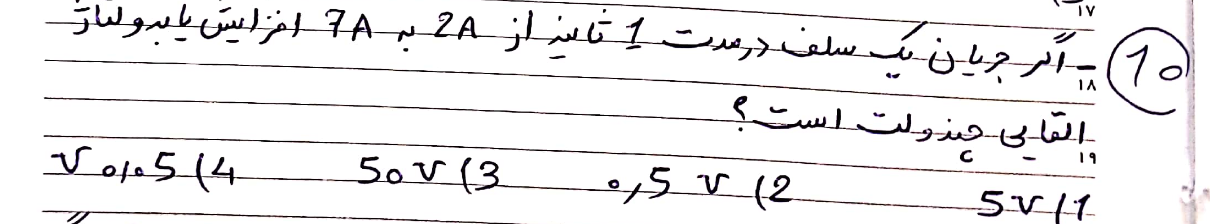 ۱۷
10 ۱۸ - اگر جریان یک سلف در مدت 1 ثانیه از 2A به 7A افزایش یابد ولتاژ
۱۹ القایی چند ولت است؟
5v (1 0,5 v (2 50v (3 v 0,05 (4